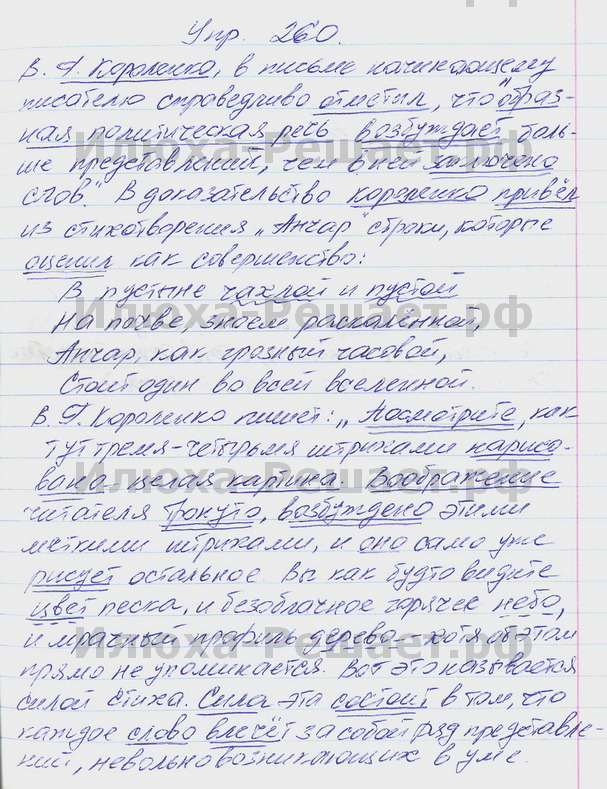 Упр. 260.
В. Г. Короленко, в письме начинающему
писателю справедливо отметил, что "образ-
ная политическая речь возбуждает боль-
ше представлений, чем в ней заключено
слов". В доказательство короленко привёл
из стихотворения „Анчар" строки, которые
оценил как совершенство:
В пустыне чахлой и пустой
На почве, зноем раскалённой,
Анчар, как грозный часовой,
Стоит один во всей вселенной.
В. Г. Короленко пишет: „Посмотрите, как
тут тремя-четырьмя штрихами нарисо-
вана целая картина. Воображение
читателя тронуто, возбуждено этими
меткими штрихами, и оно само уже
рисует остальное. Вы как будто видите
цвет песка, и безоблачное горячее небо,
и мрачный профиль дерева - хотя об этом
прямо не упоминается. Вот это называется
силой стиха. Сила эта состоит в том, что
каждое слово влечёт за собой ряд представле-
ний, невольно возникающих в уме.
Илюха-Решает.рф
Илюха-Решает.рф
Илюха-Решает.рф
Илюха-Решает.рф
.рф